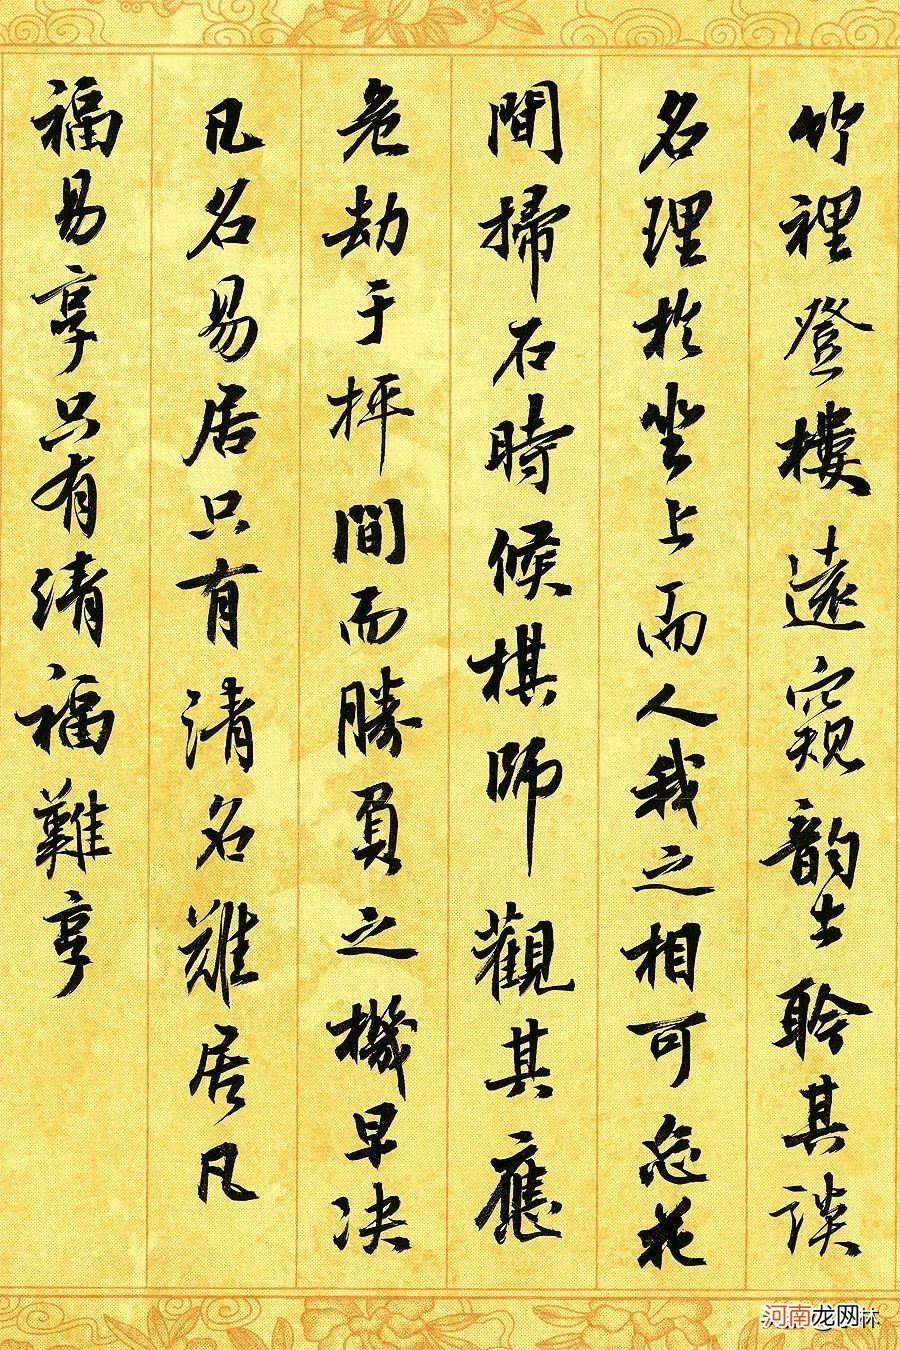 竹裡登樓遠窺韵士聆其談
名理於坐上而人我之相可忘花
間掃石時候棋師觀其應
危劫于枰間而勝負之機早决
凡名易居只有清名難居凡
福易享只有清福難享
河南龙网林